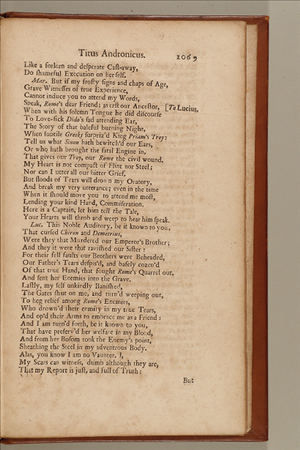 Titus Andronicus. 2069
Like a forlorn and desperate Cast-away,
Do shameful Execution on herself.
Mar. But if my frosty signs and chaps of Age,
Grave Witnesses of true Experience,
Cannot induce you to attend my Words,
Speak, Rome's dear Friend; as erst our Ancestor, [To Lucius.
When with his solemn Tongue he did discourse
To Love-sick Dido's sad attending Ear,
The Story of that baleful burning Night,
When subtile Greeks surpriz'd King Priam's Troy:
Tell us what Sinon hath bewitch'd our Ears,
Or who hath brought the fatal Engine in,
That gives our Troy, our Rome the civil wound.
My Heart is not compact of Flint nor Steel;
Nor can I utter all our bitter Grief,
But floods of Tears will drown my Oratory,
And break my very utterance; even in the time
When it should move you to attend me most,
Lending your kind Hand, Commiseration.
Here is a Captain, let him tell the Tale,
Your Hearts will throb and weep to hear him speak.
Luc. This Noble Auditory, be it known to you,
That cursed Chiron and Demetrius,
Were they that Murdered our Emperor's Brother;
And they it were that ravished our Sister:
For their fell faults our Brothers were Beheaded,
Our Father's Tears despis'd, and basely cozen'd
Of that true Hand, that fought Rome's Quarrel out,
And sent her Enemies into the Grave.
Lastly, my self unkindly Banished,
The Gates shut on me, and turn'd weeping out,
To beg relief among Rome's Enemies,
Who drown'd their enmity in my true Tears,
And op'd their Arms to embrace me as a Friend:
And I am turn'd forth, be it known to you,
That have preserv'd her welfare in my Blood,
And from her Bosom took the Enemy's point,
Sheathing the Steel in my adventrous Body.
Alas, you know I am no Vaunter, I,
My Scars can witness, dumb although they are,
That my Report is just, and full of Truth:
But